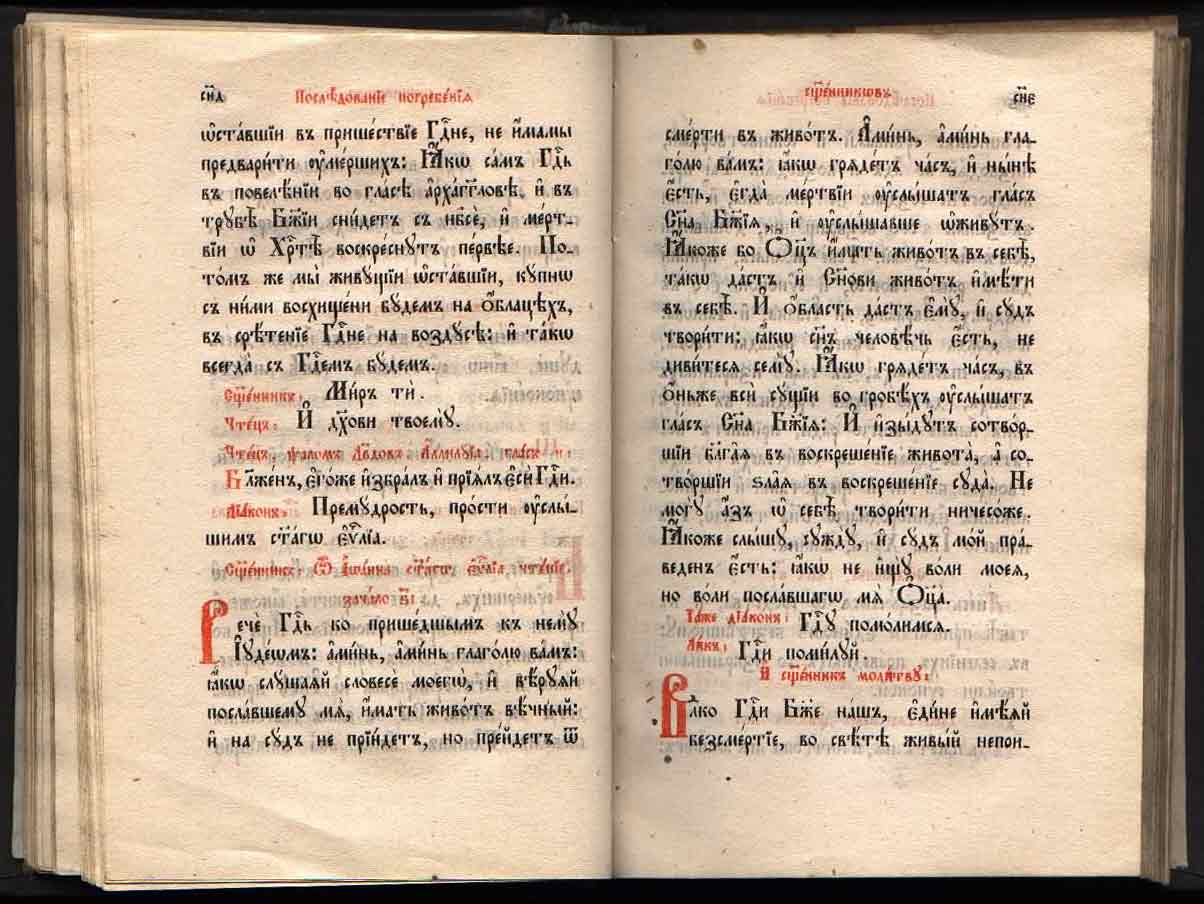 сн҃д Послѣ́дованїе погребе́нїѧ
ѡ҆ста́вшїи въ прише́ствїе Гдⷭ҇не, не и҆́мамы
предвари́ти ᲂу҆ме́ршихъ: Ꙗ҆́кѡ са́мъ Гдⷭ҇ь
въ повелѣ́нїи во гла́сѣ а҆рха́гг҃ловѣ, и҆ въ
трꙋбѣ̀ Бж҃їи сни́детъ съ нб҃сѐ, и҆ ме́рт-
вїи ѡ҆ Хрⷭ҇тѣ̀ воскре́снꙋтъ пе́рвѣе. По-
то́мъ же мы̀ живꙋ́щїи ѡ҆ста́вшїи, кꙋ́пнѡ
съ ни́ми восхище́ни бꙋ́демъ на ѻ҆́блацѣхъ,
въ срѣ́тенїе Гдⷭ҇не на воздꙋ́сѣ: и҆ та́кѡ
всегда̀ съ Гдⷭ҇емъ бꙋ́демъ.
Сщ҃е́нникъ: Ми́ръ тѝ.
Чте́цъ: И҆ дх҃ови твоемꙋ̀.
Чте́цъ, ѱало́мъ Дв҃довъ: А҆ллилꙋ́їа: гла́съ и҃:
Бл҃же́нъ, є҆го́же и҆збра́лъ и҆ прїѧ́лъ є҆сѝ Гдⷭ҇и.
Дїа́конъ: Премꙋ́дрость, про́сти ᲂу҆слы́-
шимъ ст҃а́гѡ є҆ѵⷢ҇лїа.
Сщ҃е́нникъ: Ѿ І҆ѡа́нна ст҃а́гѡ є҆ѵⷢ҇лїа чте́нїе.
зача́ло в҃і
Речѐ Гдⷭ҇ь ко прише́дшымъ къ немꙋ̀
І҆ꙋде́ѡмъ: а҆ми́нь, а҆ми́нь глаго́лю ва́мъ:
ꙗ҆́кѡ слꙋ́шаѧй словесѐ моегѡ̀, и҆ вѣ́рꙋѧй
посла́вшемꙋ мѧ̀, и҆́мать живо́тъ вѣ́чный:
и҆ на сꙋ́дъ не прїи́детъ, но пре́йдетъ ѿ
сщ҃е́нникѡвъ сн҃е
сме́рти въ живо́тъ. А҆ми́нь, а҆ми́нь гла-
го́лю ва́мъ: ꙗ҆́кѡ грѧде́тъ ча́съ, и҆ ны́нѣ
є҆́сть, є҆гда̀ ме́ртвїи ᲂу҆слы́шатъ гла́съ
Сн҃а Бж҃їѧ, и҆ ᲂу҆слы́шавше ѡ҆живꙋ́тъ.
Ꙗ҆́коже бо Ѻ҆ц҃ъ и҆́мать живо́тъ въ себѣ̀,
та́кѡ дастъ и҆ Сн҃ови живо́тъ и҆мѣ́ти
въ себѣ̀. И҆ ѻ҆́бласть дастъ є҆мꙋ̀, и҆ сꙋ́дъ
твори́ти: ꙗ҆́кѡ сн҃ъ человѣ́чь є҆́сть, не
диви́тесѧ семꙋ̀. Ꙗ҆́кѡ грѧде́тъ ча́съ, въ
ѻ҆́ньже всѝ сꙋ́щїи во гробѣ́хъ ᲂу҆слы́шатъ
гла́съ Сн҃а Бж҃їѧ: И҆ и҆зы́дꙋтъ сотво́р-
шїи бл҃га̑ѧ въ воскреше́нїе живота̀, а҆ со-
тво́ршїи ѕла̑ѧ въ воскреше́нїе сꙋда̀. Не
могꙋ̀ а҆́зъ ѡ҆ себѣ̀ твори́ти ничесо́же.
Ꙗ҆́коже слы́шꙋ, сꙋждꙋ̀, и҆ сꙋ́дъ мо́й пра́-
веденъ є҆́сть: ꙗ҆́кѡ не и҆щꙋ̀ во́ли моеѧ̀,
но во́ли посла́вшагѡ мѧ̀ Ѻ҆ц҃а̀.
Та́же дїа́конъ: Гдⷭ҇ꙋ помо́лимсѧ.
Ли́къ: Гдⷭ҇и поми́лꙋй.
И҆ сщ҃е́нникъ моли́твꙋ:
Влⷣко Гдⷭ҇и Бж҃е на́шъ, є҆ди́не и҆мѣ́ѧй
безсме́ртїе, во свѣ́тѣ живы́й непри-